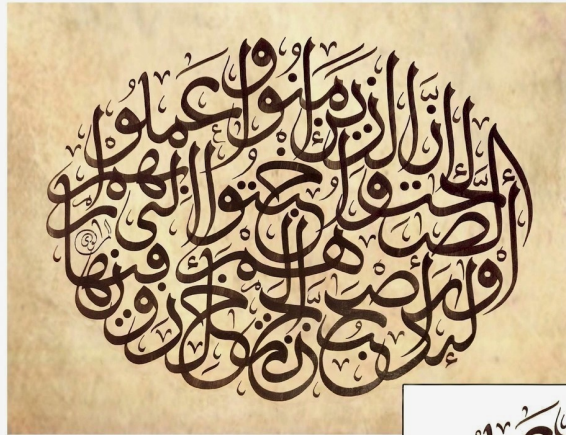 إن الذين ءامنوا وعملوا
الصالحات وأخبتوا إلى ربهم
أولئك أصحاب الجنة هم فيها
خالدون